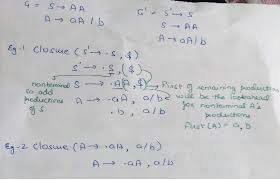 G = S → AA
A → aA / b
G' = S' → S
S → AA
A → aA / b
Eg-1 Closure (S' → ·S, $)
S' → ·S, ($)
nonterminal so add productions of S
S → ·A(A, $)
A → ·aA, a/b
·b, a/b
First of remaining production will be the lookahead for nonterminal A's productions
First(A) = a, b
Eg-2 Closure (A → ·aA, a/b)
A → ·aA, a/b